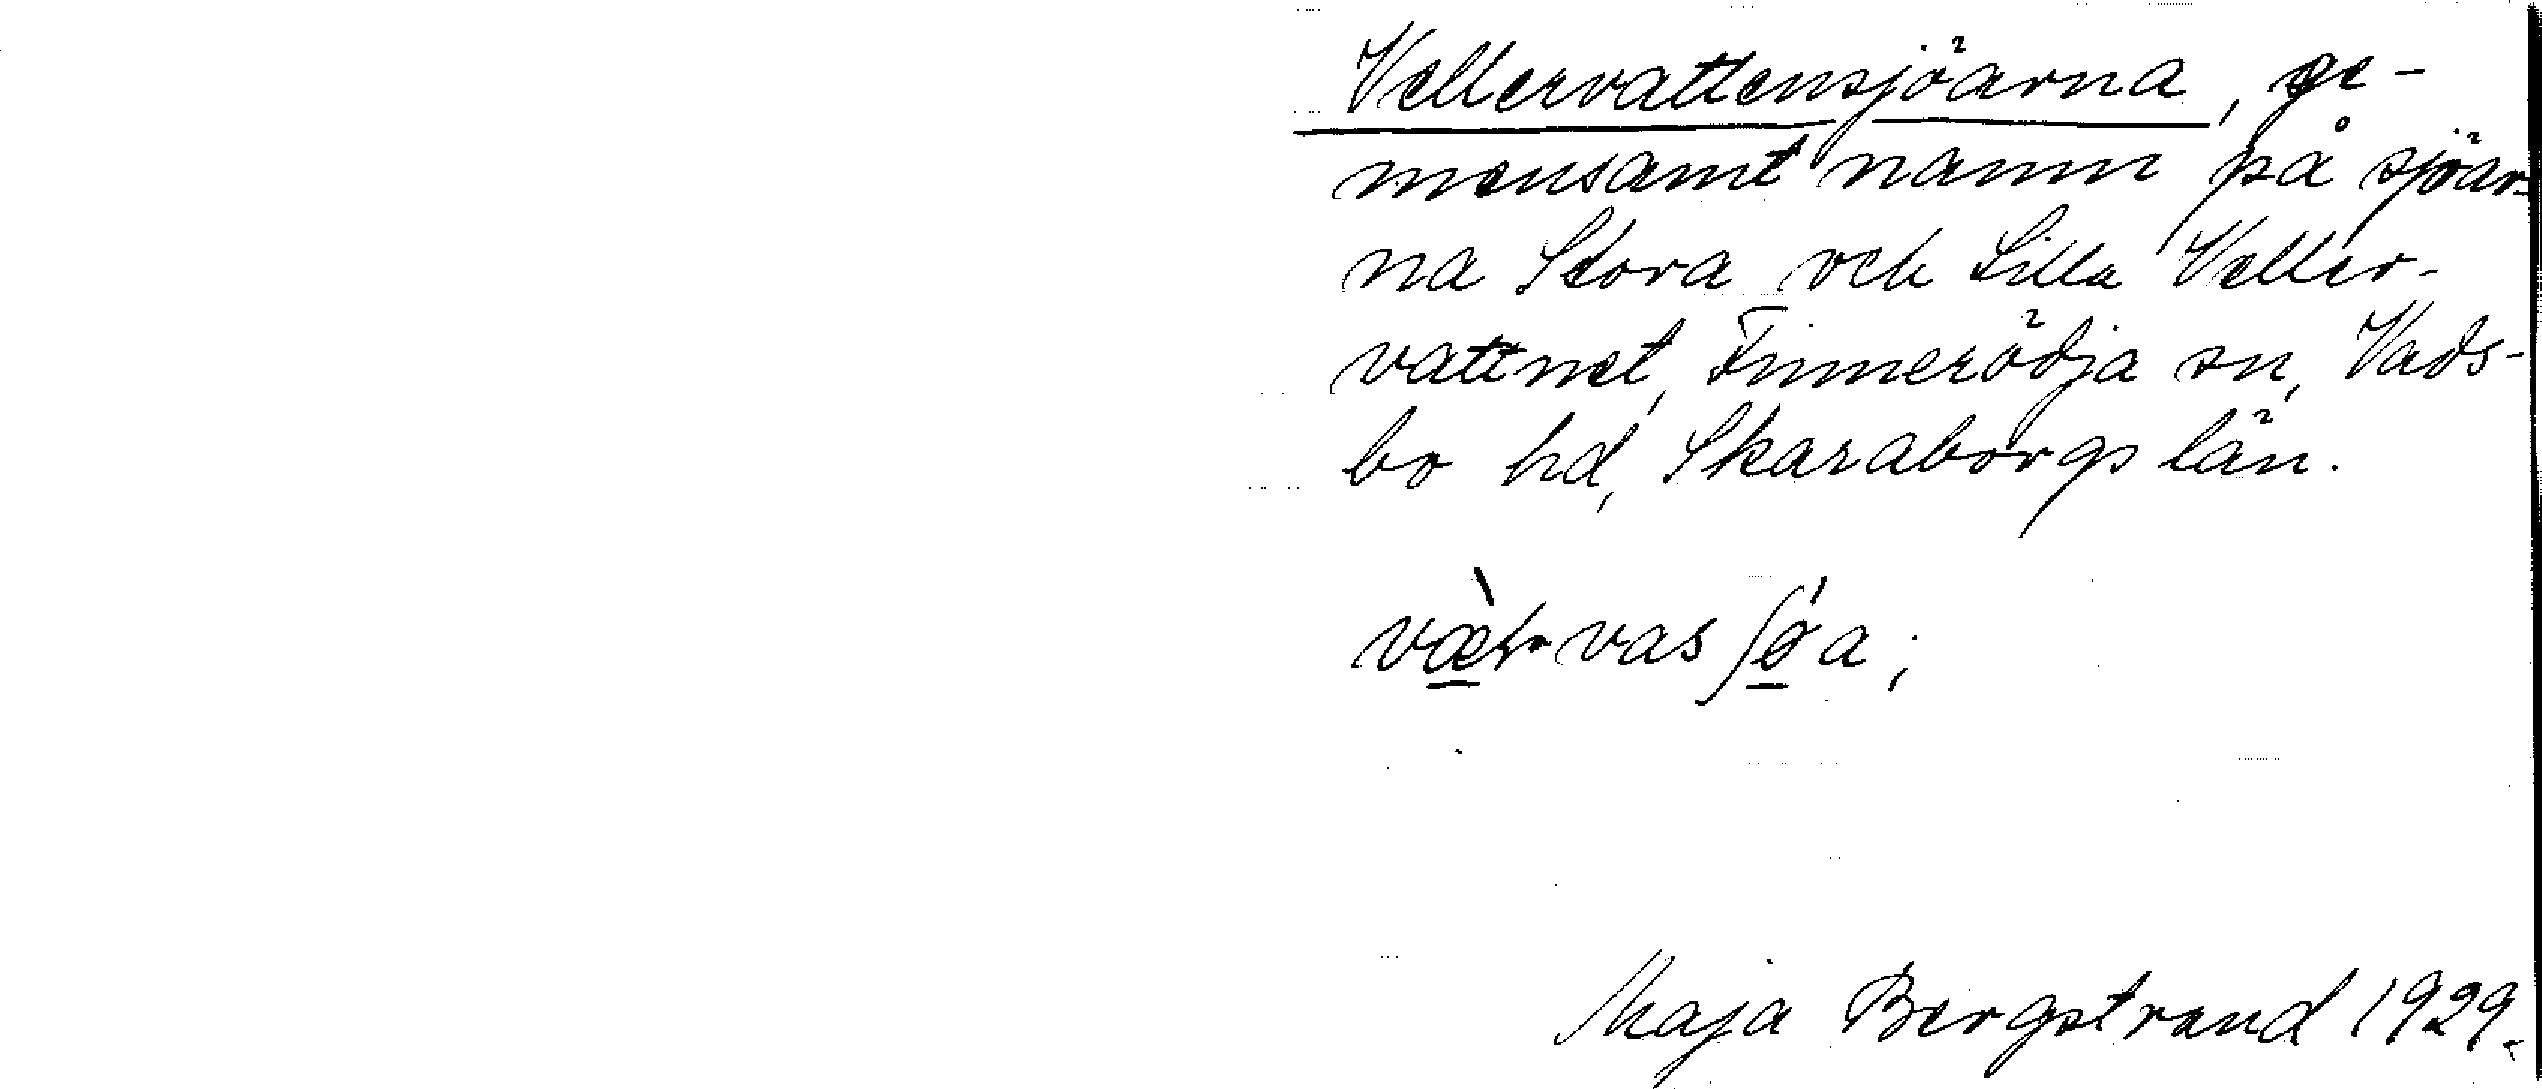 Vellervattensjöarna, ge-
mensamt namn på sjöar-
na Stora och Lilla Veller-
vattnet, Finnerödja sn, Vads-
bo hd, Skaraborgs län.
Maja Bergstrand 1929.